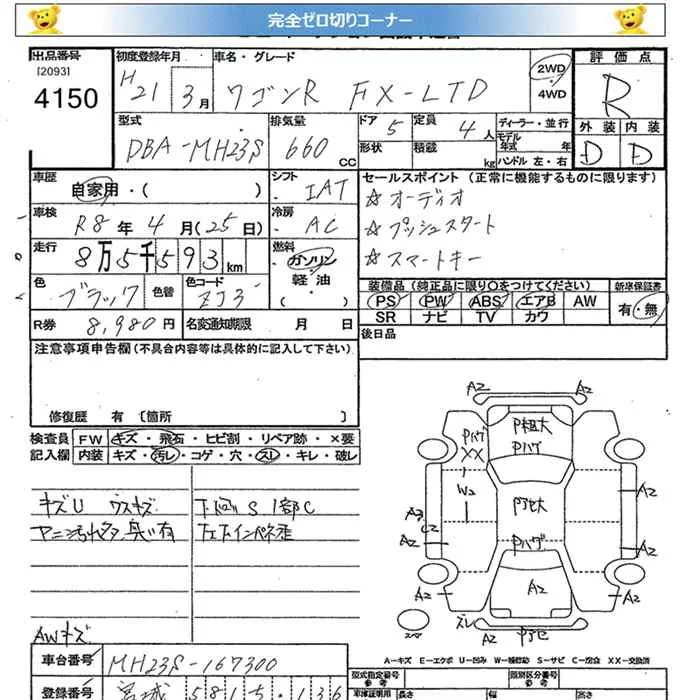 完全ゼロ切りコーナー
出品番号 初度登録年月 車名・グレード 2WD 4WD 評価点
[2093]
4150
H21 3月 ワゴンR FX-LTD R
型式 排気量 ドア 定員 ディーラー・並行 外装 内装
DBA-MH23S 660 CC 5 4人 モデル年式 年 D D
形状 積載 kg ハンドル 左・右
車歴 自家用・( ) シフト IAT セールスポイント (正常に機能するものに限ります)
☆オーディオ
車検 R8年4月(25日) 冷房 AC ☆プッシュスタート
走行 8万5千593km 燃料 ガソリン・軽油 ( ) ☆スマートキー
色 ブラック 色替 色コード ZJ3 装備品 (純正品に限り○をつけてください) 新車保証書
PS PW ABS エアB AW 有・無
SR ナビ TV カワ
R券 8,980円 名変通知期限 月 日 後日品
注意事項申告欄 (不具合内容等は具体的に記入して下さい)
修復歴 有 [箇所 ]
検査員 FW キズ・飛石・ヒビ割・リペア跡・×要
記入欄 内装 キズ・汚レ・コゲ・穴・スレ・キレ・破レ
キズU ウスキズ 下回りS 1部C
ヤニ汚れ 臭い有
AWキズ
A2 A2
P粗大
Pハゲ Pハゲ
XX
W2 A2
A3 C2
A2 A2
Pハゲ
A2
A2 A2
スレ
A2
A−キズ E−エクボ U−凹み W−補修跡 S−サビ C−腐食 XX−交換済
車台番号 MH23S-167300
登録番号 宮城 581 5・136
型式指定番号 参考 類別区分番号 参考
車庫証明用 長さ 幅 高さ